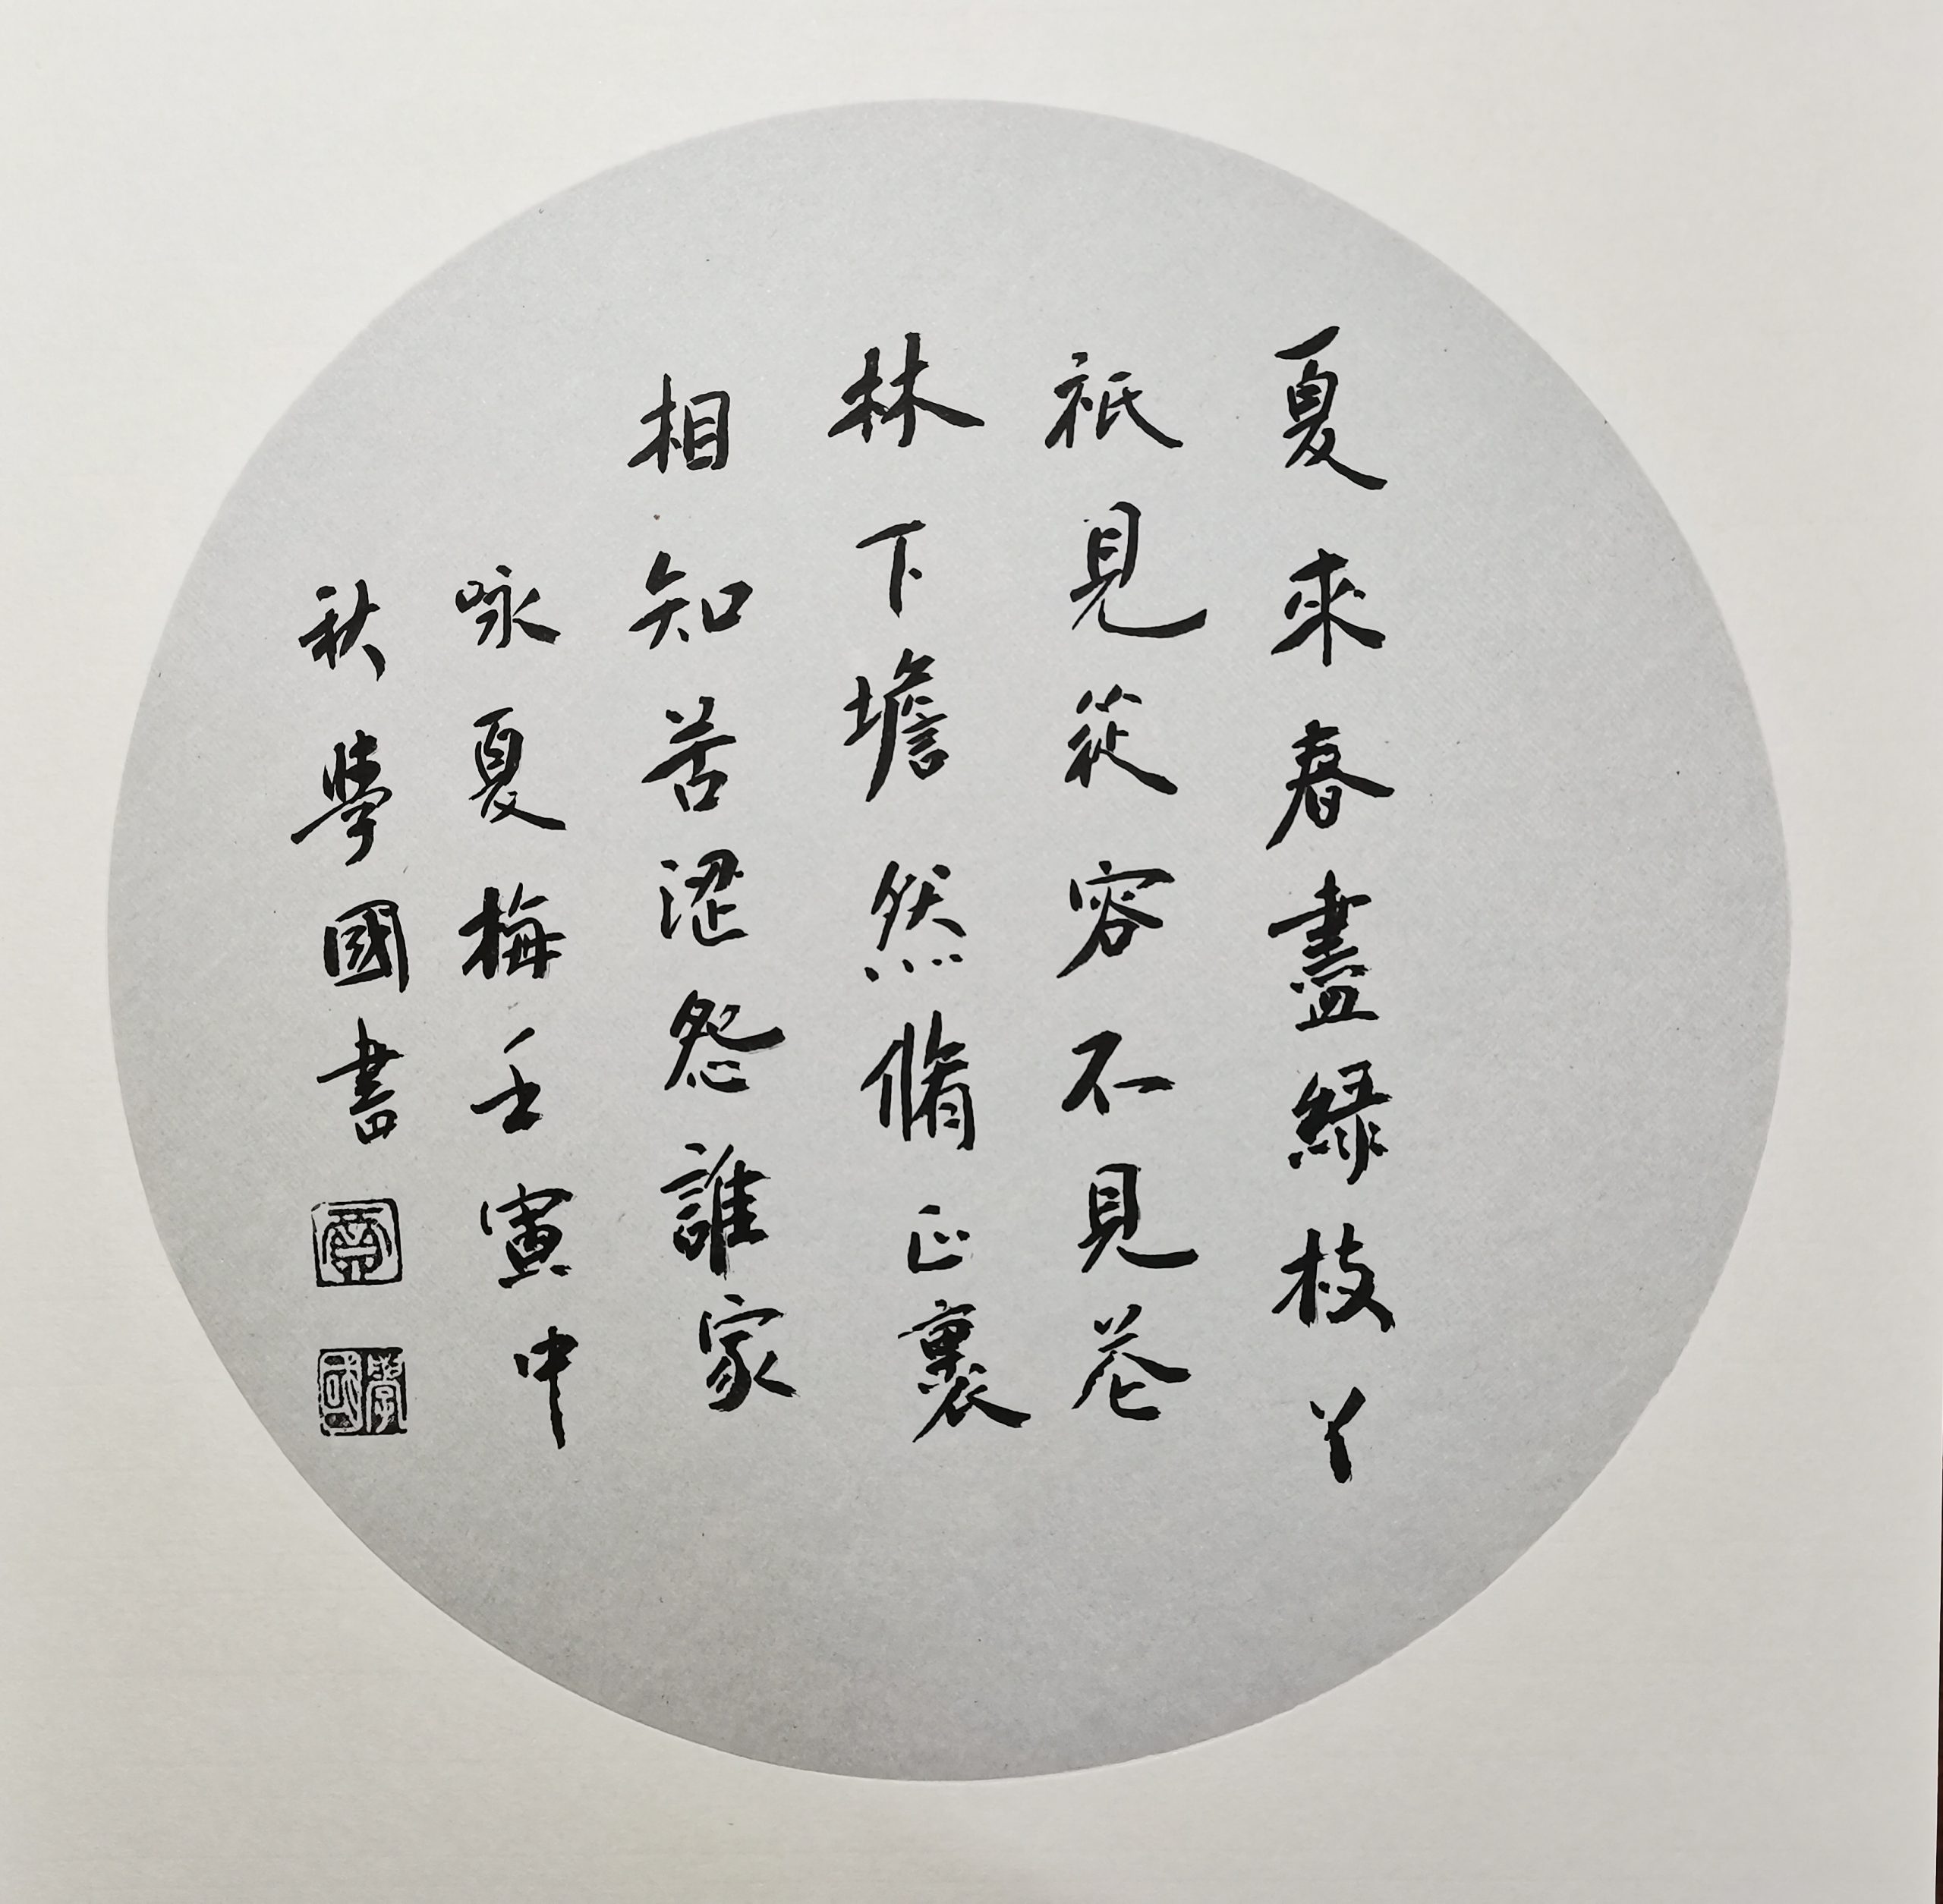 夏來春盡綠枝丫
祇見從容不見花
林下澹然脩正裏
相知苦涩怨誰家
咏夏梅壬寅中
秋學國書
學國